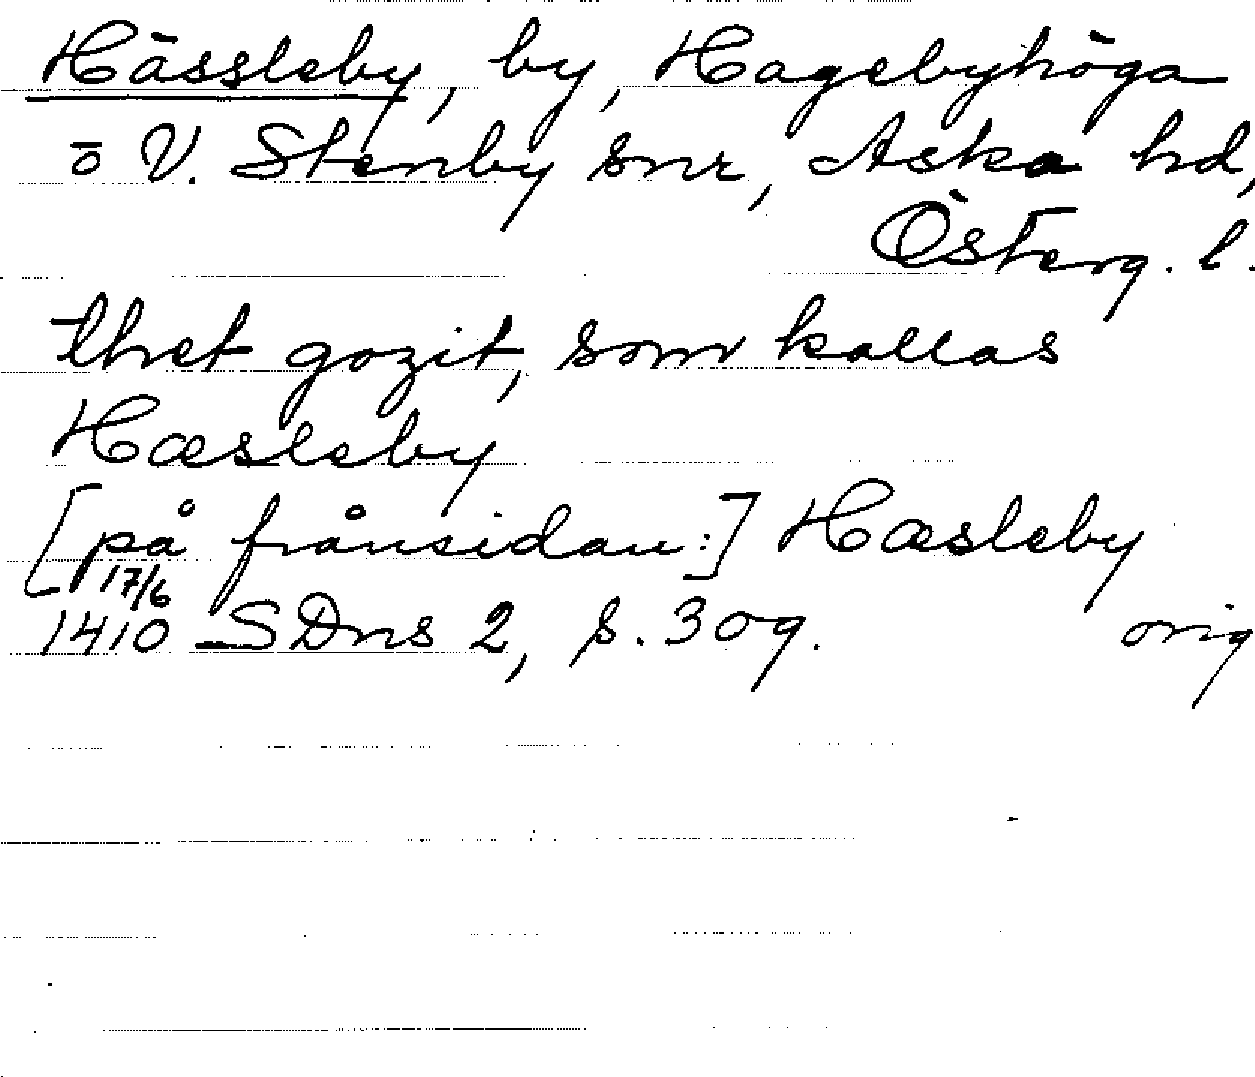 Hässleby, by, Hagebyhöga
o V. Stenby snr, Aska hd,
Österg. l.
thet gozit, som kallas
Hæsleby
[på frånsidan:] Hæsleby
17/6
1410 SDns 2, s. 309. orig